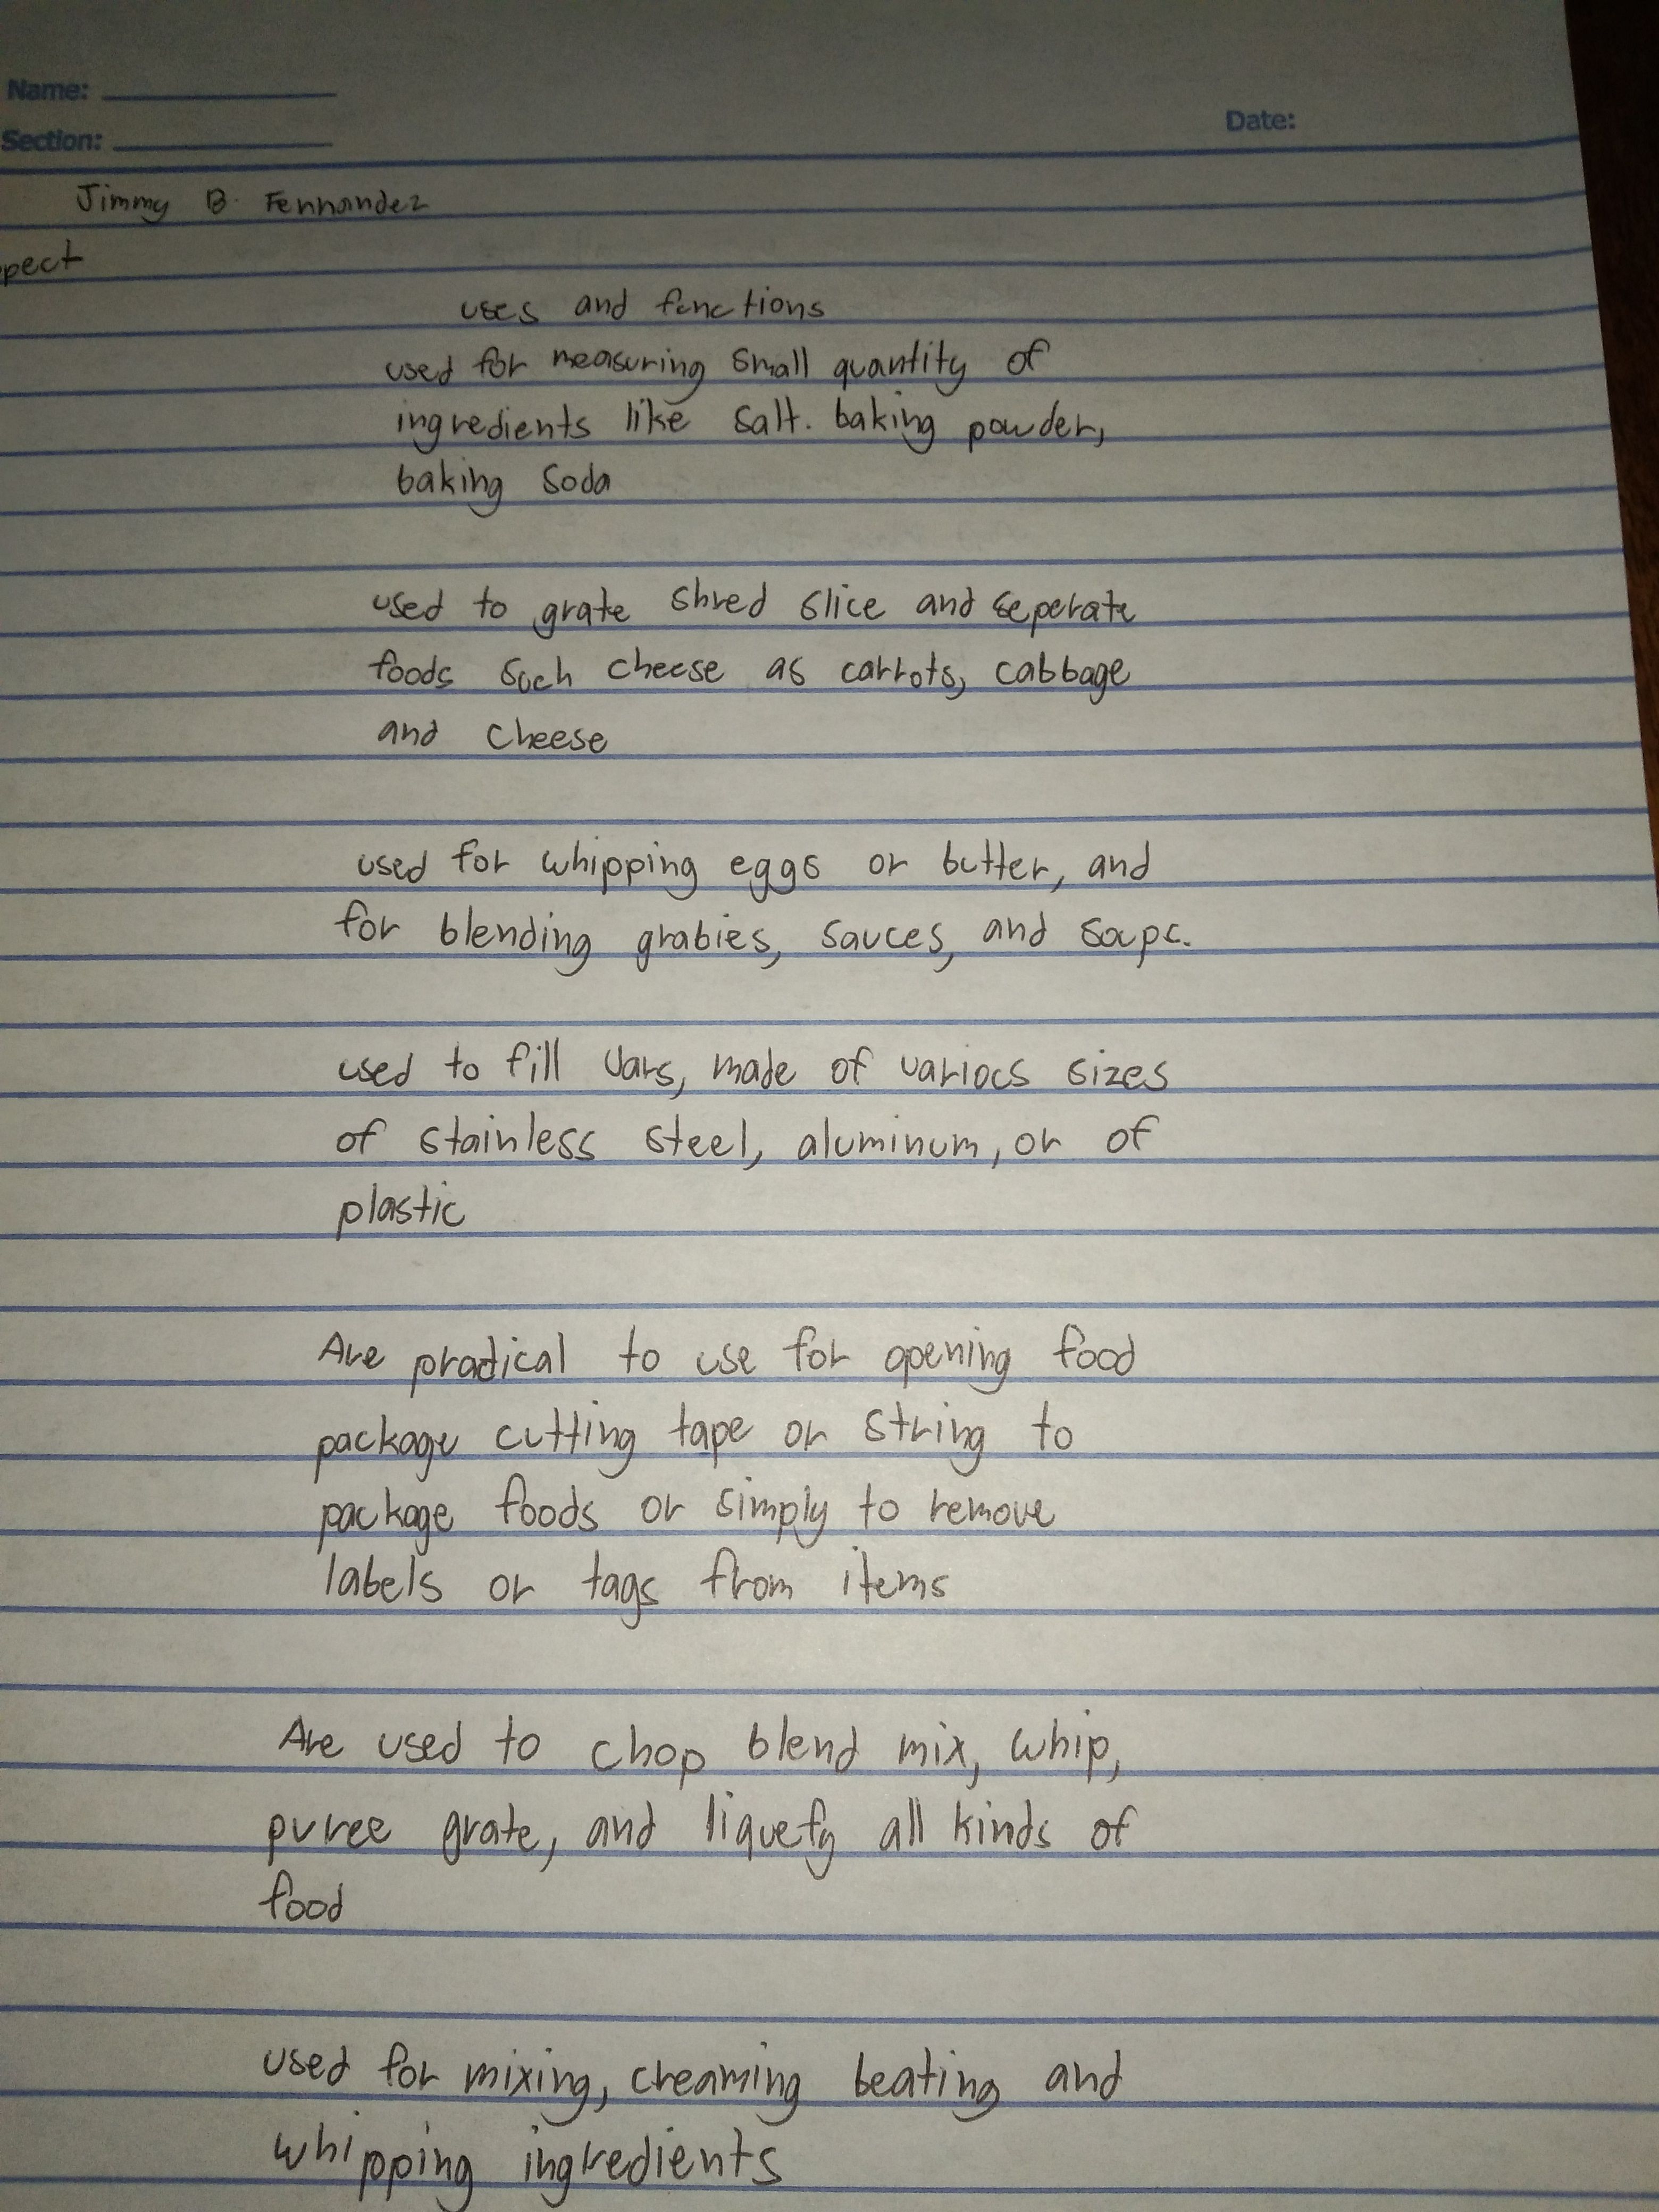 Name:
Date:
Section:
Jimmy B. Fernandez
pect
uses and functions
used for measuring small quantity of
ingredients like salt. baking powder,
baking soda
used to grate shred slice and seperate
foods such cheese as carrots, cabbage
and cheese
used for whipping eggs or butter, and
for blending grabies, sauces, and soups.
used to fill Jars, made of various sizes
of stainless steel, aluminum, or of
plastic
Are pradical to use for opening food
package cutting tape or string to
package foods or simply to remove
labels or tags from items
Are used to chop blend mix, whip,
puree grate, and liquefy all kinds of
food
used for mixing, creaming beating and
whipping ingredients